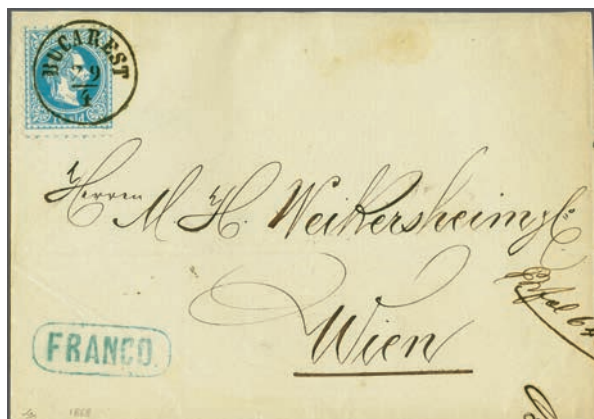 BUCAREST
29
4
Herren M. H. Weikersheim & C.
Wien
FRANCO.
1868